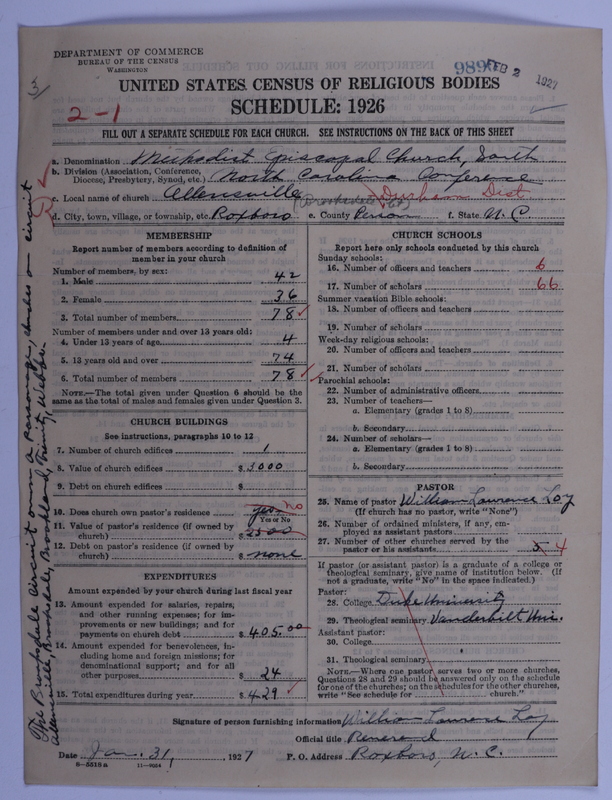 DEPARTMENT OF COMMERCE
BUREAU OF THE CENSUS
WASHINGTON
989 FEB 2 1927
3/
2-1
UNITED STATES CENSUS OF RELIGIOUS BODIES
SCHEDULE: 1926
FILL OUT A SEPARATE SCHEDULE FOR EACH CHURCH. SEE INSTRUCTIONS ON THE BACK OF THIS SHEET
a. Denomination Methodist Episcopal Church, South
b. Division (Association, Conference, Diocese, Presbytery, Synod, etc.) North Carolina Conference
c. Local name of church Allensville (Brooksdale) Durham Dist
d. City, town, village, or township, etc. Roxboro e. County Person f. State N. C.
MEMBERSHIP
Report number of members according to definition of
member in your church
Number of members, by sex:
1. Male 42
2. Female 36
3. Total number of members 78
Number of members under and over 13 years old:
4. Under 13 years of age 4
5. 13 years old and over 74
6. Total number of members 78
NOTE.—The total given under Question 6 should be
same as the total of males and females given under Question 3.
CHURCH BUILDINGS
See instructions, paragraphs 10 to 12
7. Number of church edifices 1
8. Value of church edifices $ 3000
9. Debt on church edifices $
10. Does church own pastor's residence yes no
Yes or No
11. Value of pastor's residence (if owned by
church) $ 2500
12. Debt on pastor's residence (if owned by
church) $ none
EXPENDITURES
Amount expended by your church during last fiscal year
13. Amount expended for salaries, repairs,
and other running expenses; for im-
provements or new buildings; and for
payments on church debt $ 405.00
14. Amount expended for benevolences, in-
cluding home and foreign missions; for
denominational support; and for all
other purposes $ 24
15. Total expenditures during year $ 429
CHURCH SCHOOLS
Report here only schools conducted by this church
Sunday schools:
16. Number of officers and teachers 6
17. Number of scholars 66
Summer vacation Bible schools:
18. Number of officers and teachers
19. Number of scholars
Week-day religious schools:
20. Number of officers and teachers
21. Number of scholars
Parochial schools:
22. Number of administrative officers
23. Number of teachers—
a. Elementary (grades 1 to 8)
b. Secondary
24. Number of scholars—
a. Elementary (grades 1 to 8)
b. Secondary
PASTOR
25. Name of pastor William Laurance Loy
(If church has no pastor, write "None")
26. Number of ordained ministers, if any, em-
ployed as assistant pastors
27. Number of other churches served by the
pastor or his assistants 5 4
If pastor (or assistant pastor) is a graduate of a college or
theological seminary, give name of institution below. (If
not a graduate, write "No" in the space indicated.)
Pastor:
28. College Duke University
29. Theological seminary Vanderbilt Uni.
Assistant pastor:
30. College
31. Theological seminary
NOTE.—Where one pastor serves two or more churches,
Questions 28 and 29 should be answered only on the schedule
for one of the churches; on the schedules for the other churches,
write "See schedule for church."
Signature of person furnishing information William Laurance Loy
Official title Reverend
Date Jan. 31, 1927 P. O. Address Roxboro, N. C.
8—5518a 11—9024
The Brooksdale circuit own a parsonage, churches on circuit
Allensville, Brooksdale, Brookland, Trinity,